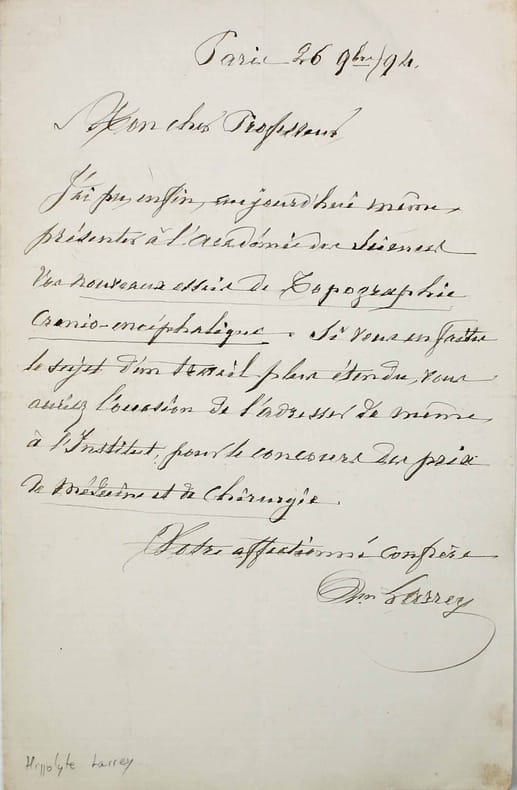 Paris 26 9bre/94.
Mon cher Professeur
J'ai pu, enfin, aujourd'hui même,
présenter à l'académie des Sciences
Vos nouveaux essais de Topographie
Cranio-encéphalique. Si vous en faites
le sujet d'un travail plus étendu, vous
auriez l'occasion de l'adresser de même,
à l'Institut, pour le concours du prix
de Médecine et de Chirurgie.
Votre affectionné confrère
Bon Larrey
Hippolyte Larrey